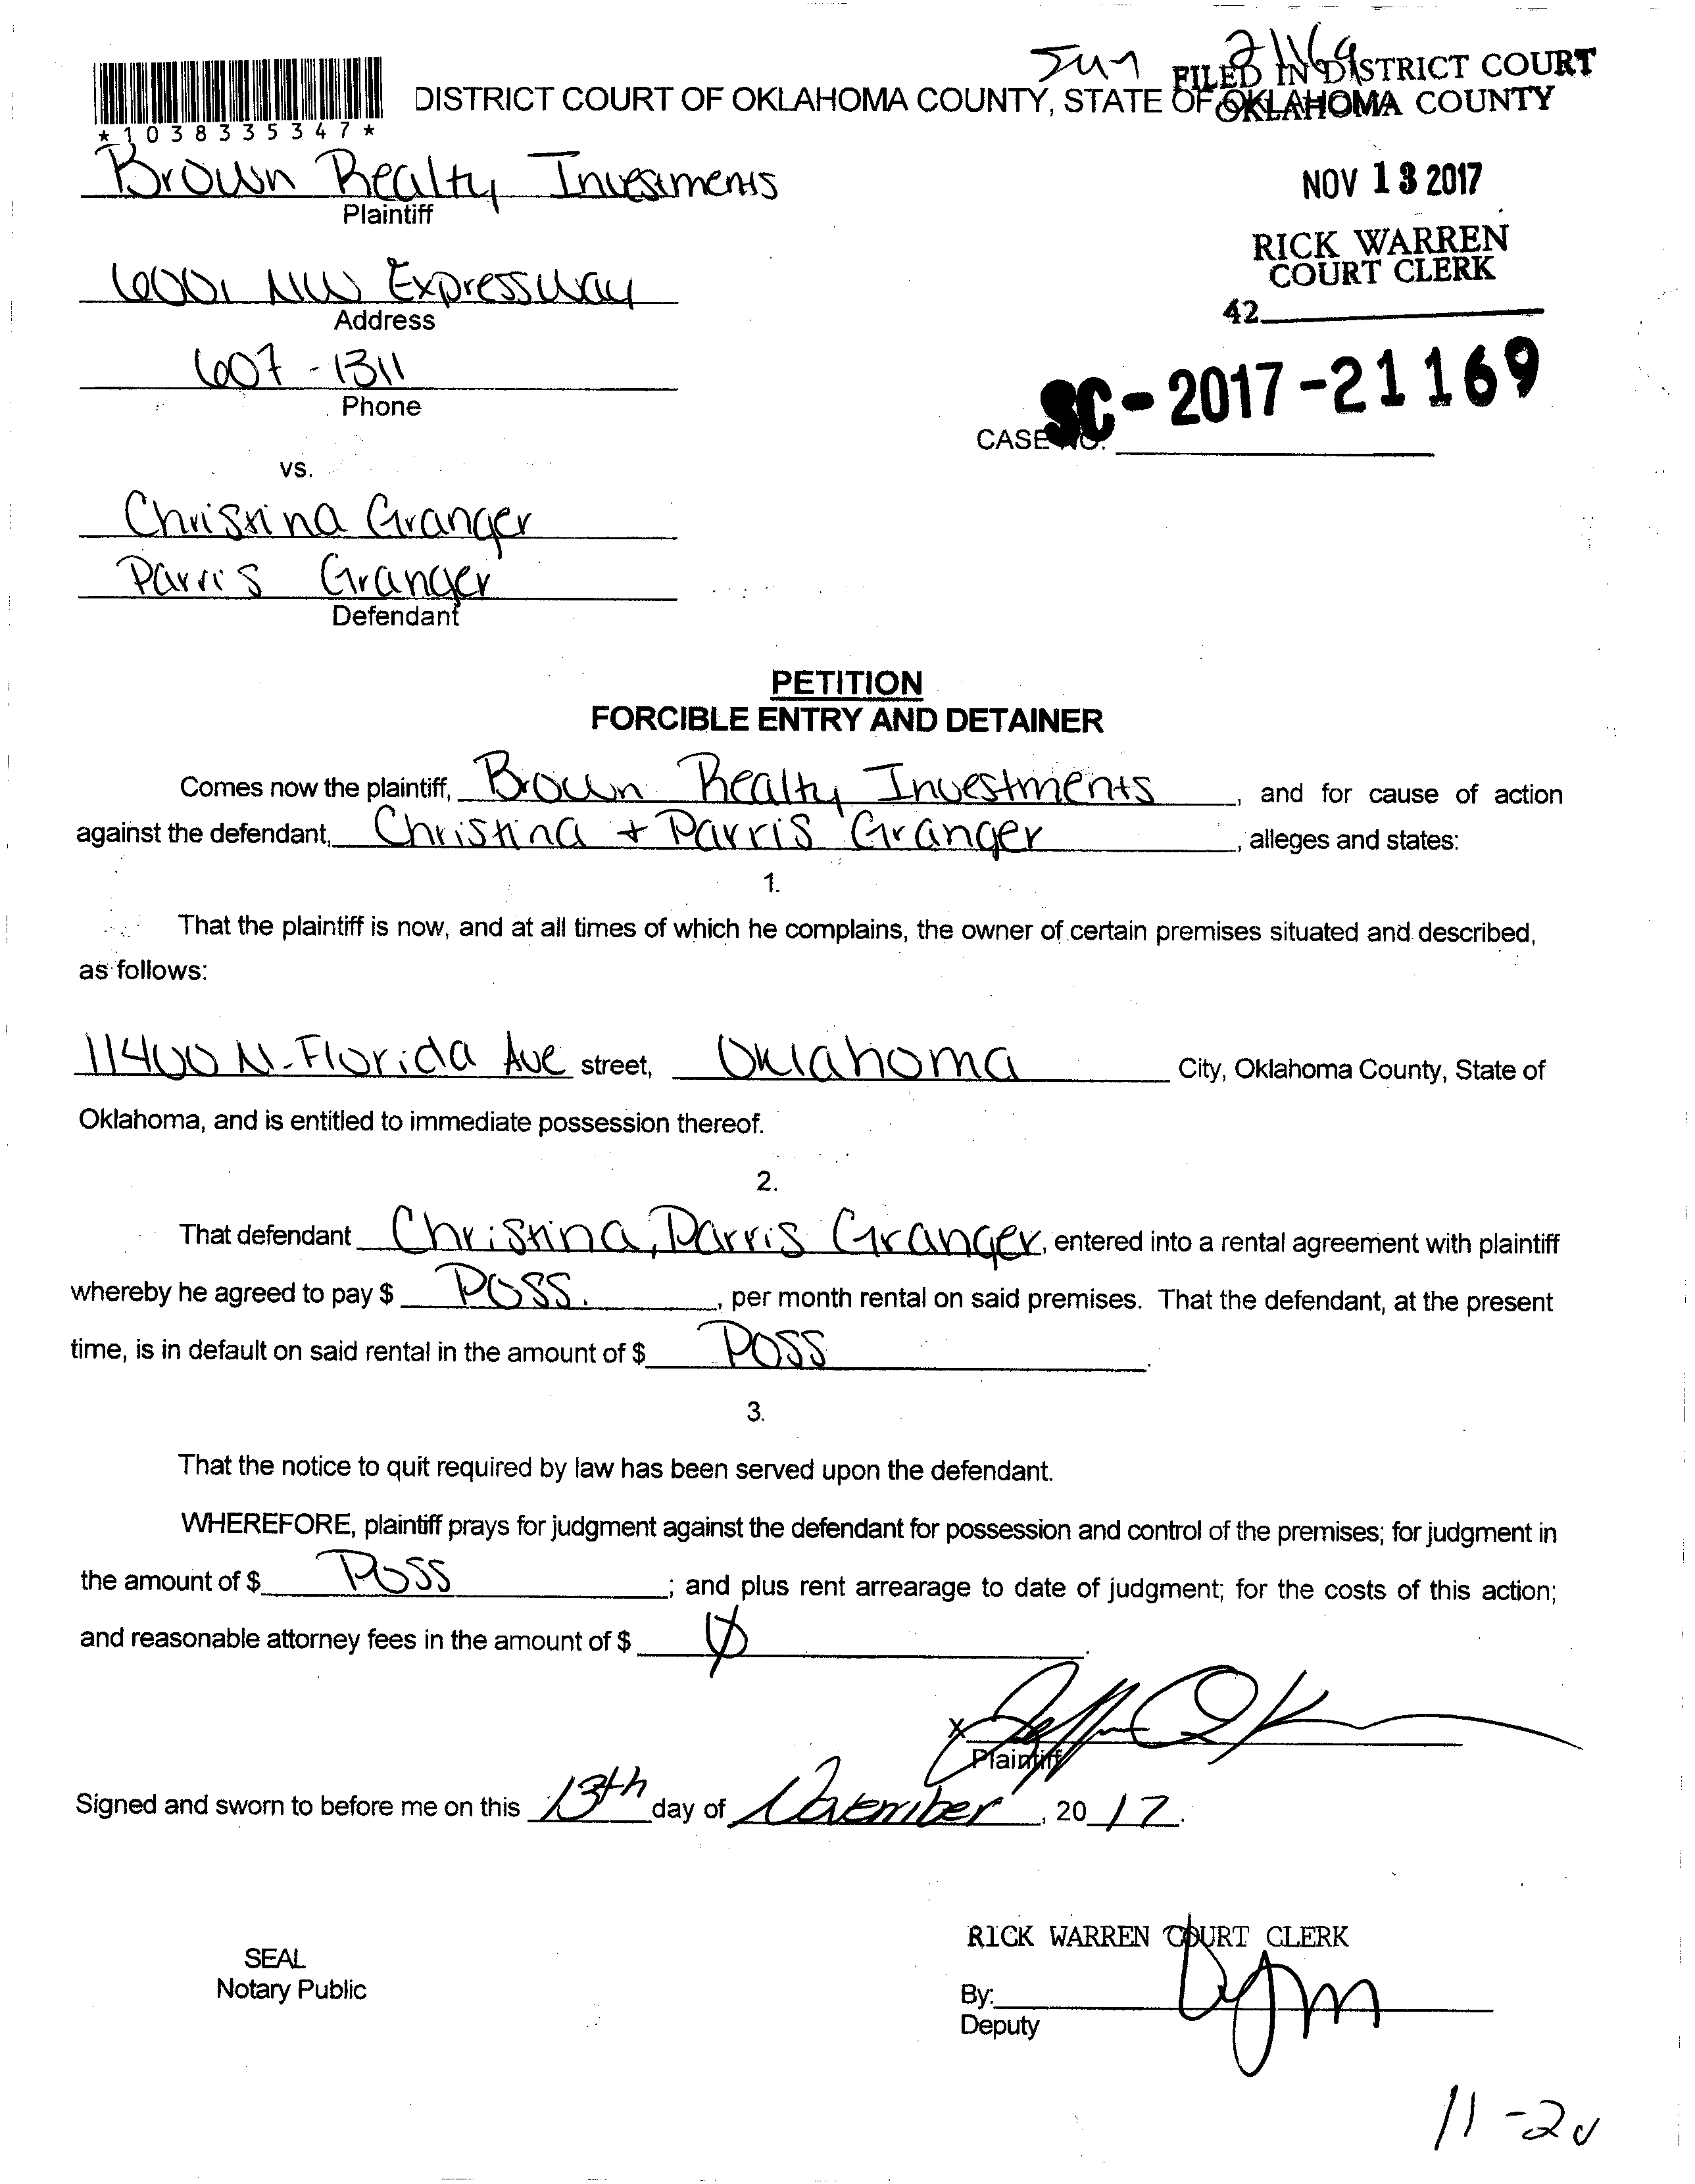 21169
FILED IN DISTRICT COURT
DISTRICT COURT OF OKLAHOMA COUNTY, STATE OF OKLAHOMA COUNTY
*1038335347*
Brown Realty Investments
Plaintiff
NOV 13 2017
RICK WARREN
COURT CLERK
6001 NW Expressway
Address
42
607-1311
Phone
SC-2017-21169
CASE NO.
vs.
Christina Granger
Parris Granger
Defendant
PETITION
FORCIBLE ENTRY AND DETAINER
Comes now the plaintiff, Brown Realty Investments, and for cause of action
against the defendant, Christina + Parris Granger, alleges and states:
1.
That the plaintiff is now, and at all times of which he complains, the owner of certain premises situated and described,
as follows:
11400 N. Florida Ave street, Oklahoma City, Oklahoma County, State of
Oklahoma, and is entitled to immediate possession thereof.
2.
That defendant Christina, Parris Granger, entered into a rental agreement with plaintiff
whereby he agreed to pay $ POSS., per month rental on said premises. That the defendant, at the present
time, is in default on said rental in the amount of $ POSS.
3.
That the notice to quit required by law has been served upon the defendant.
WHEREFORE, plaintiff prays for judgment against the defendant for possession and control of the premises; for judgment in
the amount of $ POSS; and plus rent arrearage to date of judgment; for the costs of this action;
and reasonable attorney fees in the amount of $ Ø.
X
Plaintiff
Signed and sworn to before me on this 13th day of November, 2017.
RICK WARREN COURT CLERK
SEAL
Notary Public
By:
Deputy
11-20